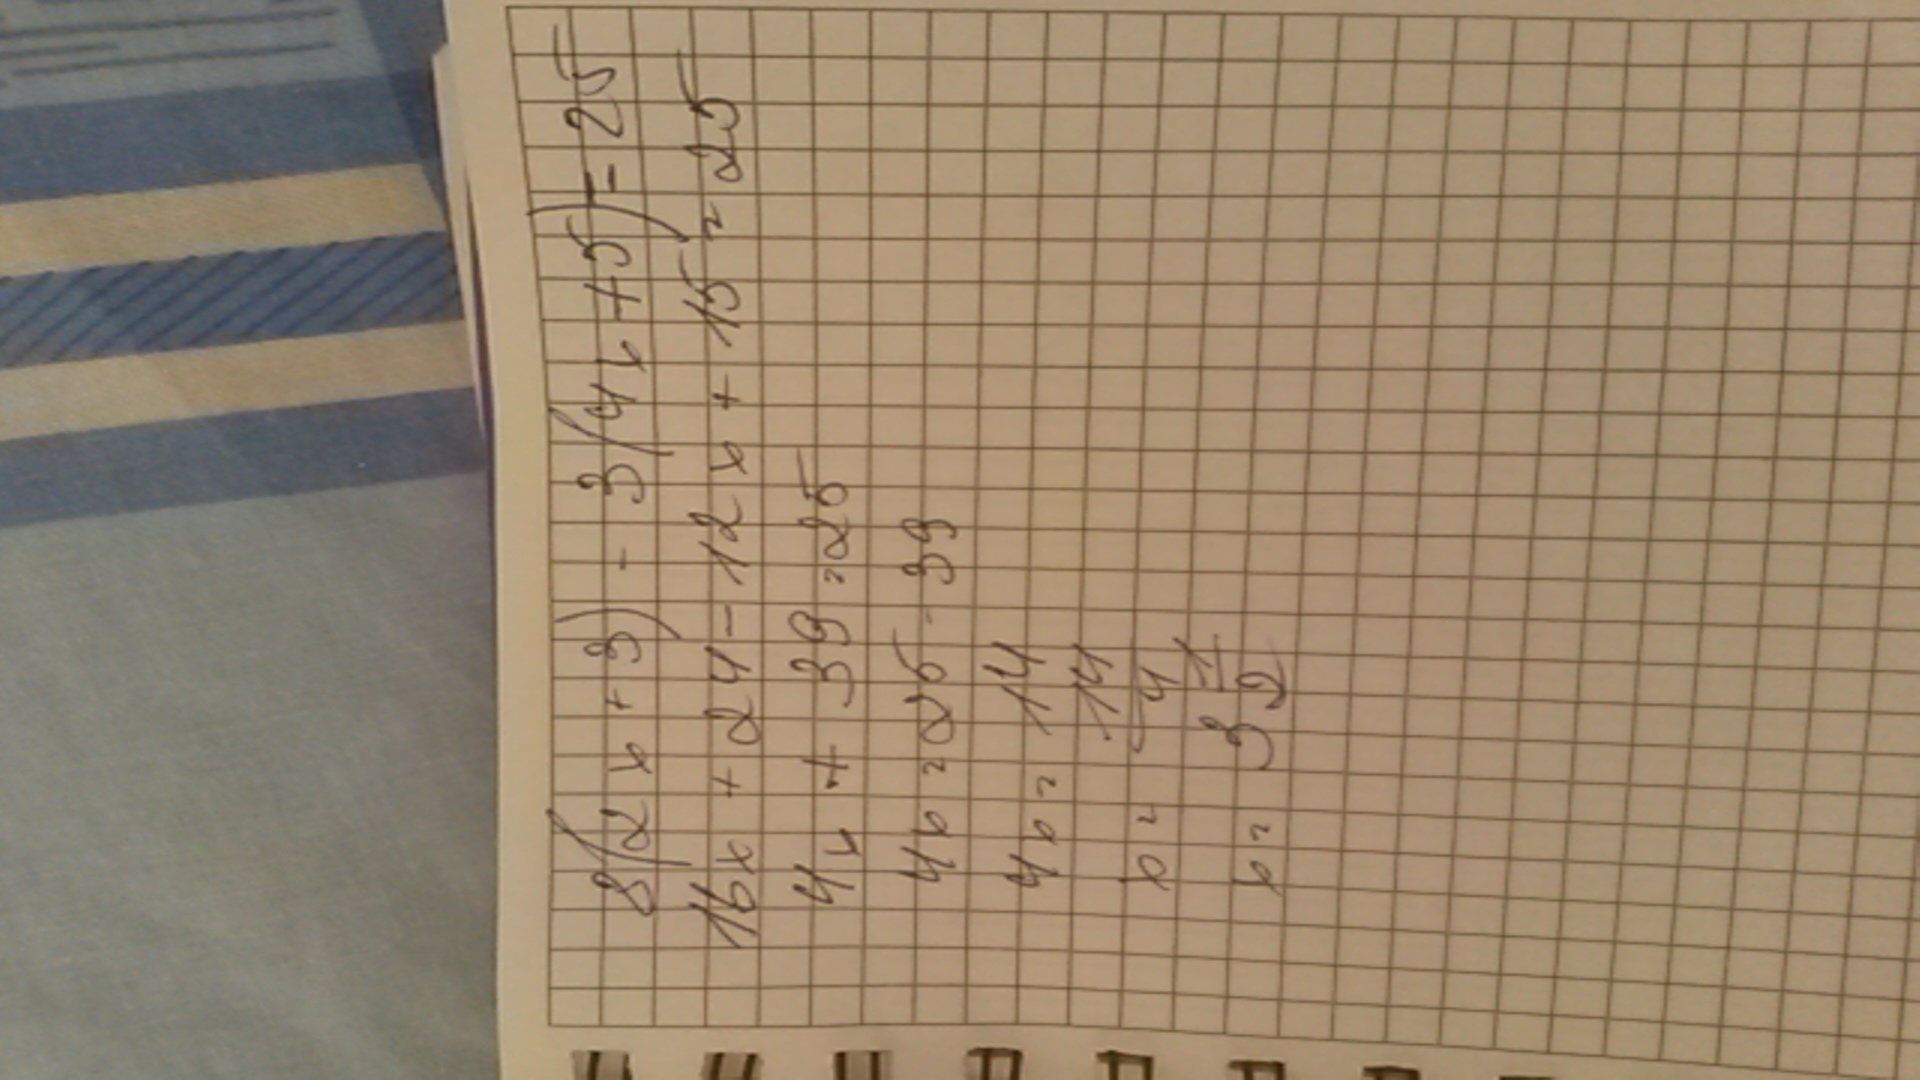 8(2x+3) - 3(4x+5) = 25
16x + 24 - 12x + 15 = 25
4x + 39 = 25
4x = 25 - 39
4x = 14
x = -14/-4
x = 3 1/2